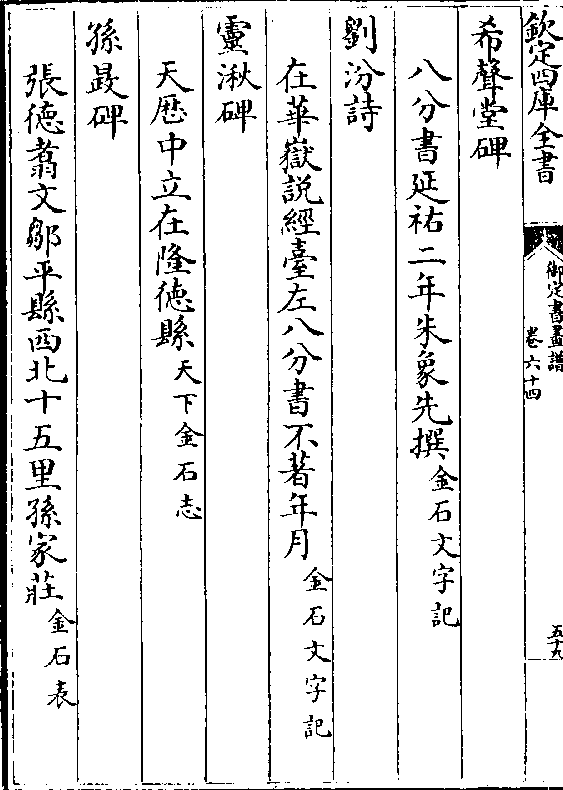 欽定四庫全書
御定書畫譜
卷六十四
五十九
希聲堂碑
八分書延祐二年朱象先撰金石文字記
劉汾詩
在華嶽説經臺左八分書不著年月金石文字記
靈湫碑
天歴中立在隆徳縣天下金石志
孫㝡碑
張徳翥文鄒平縣西北十五里孫家莊金石表